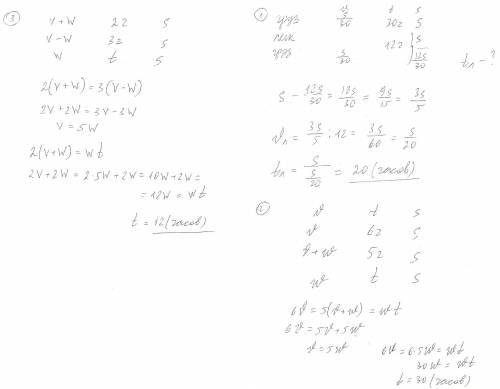 ③
V+W 2г S
V-W 3г S
W t S
2(V+W)=3(V-W)
2V+2W=3V-3W
V=5W
2(V+W)=Wt
2V+2W=2·5W+2W=10W+2W=
=12W=Wt
t=12(часов)
① v t S
груз S/30 30г S
легк 12г } S
груз S/30 12S/30
tл-?
S-12S/30=18S/30=9S/15=3S/5
vл=3S/5:12=3S/60=S/20
tл=S/(S/20)=20(часов)
②
v t S
v 6г S
v+w 5г S
w t S
6v=5(v+w)=wt
6v=5v+5w
v=5w 6v=6·5w=wt
30w=wt
t=30(часов)